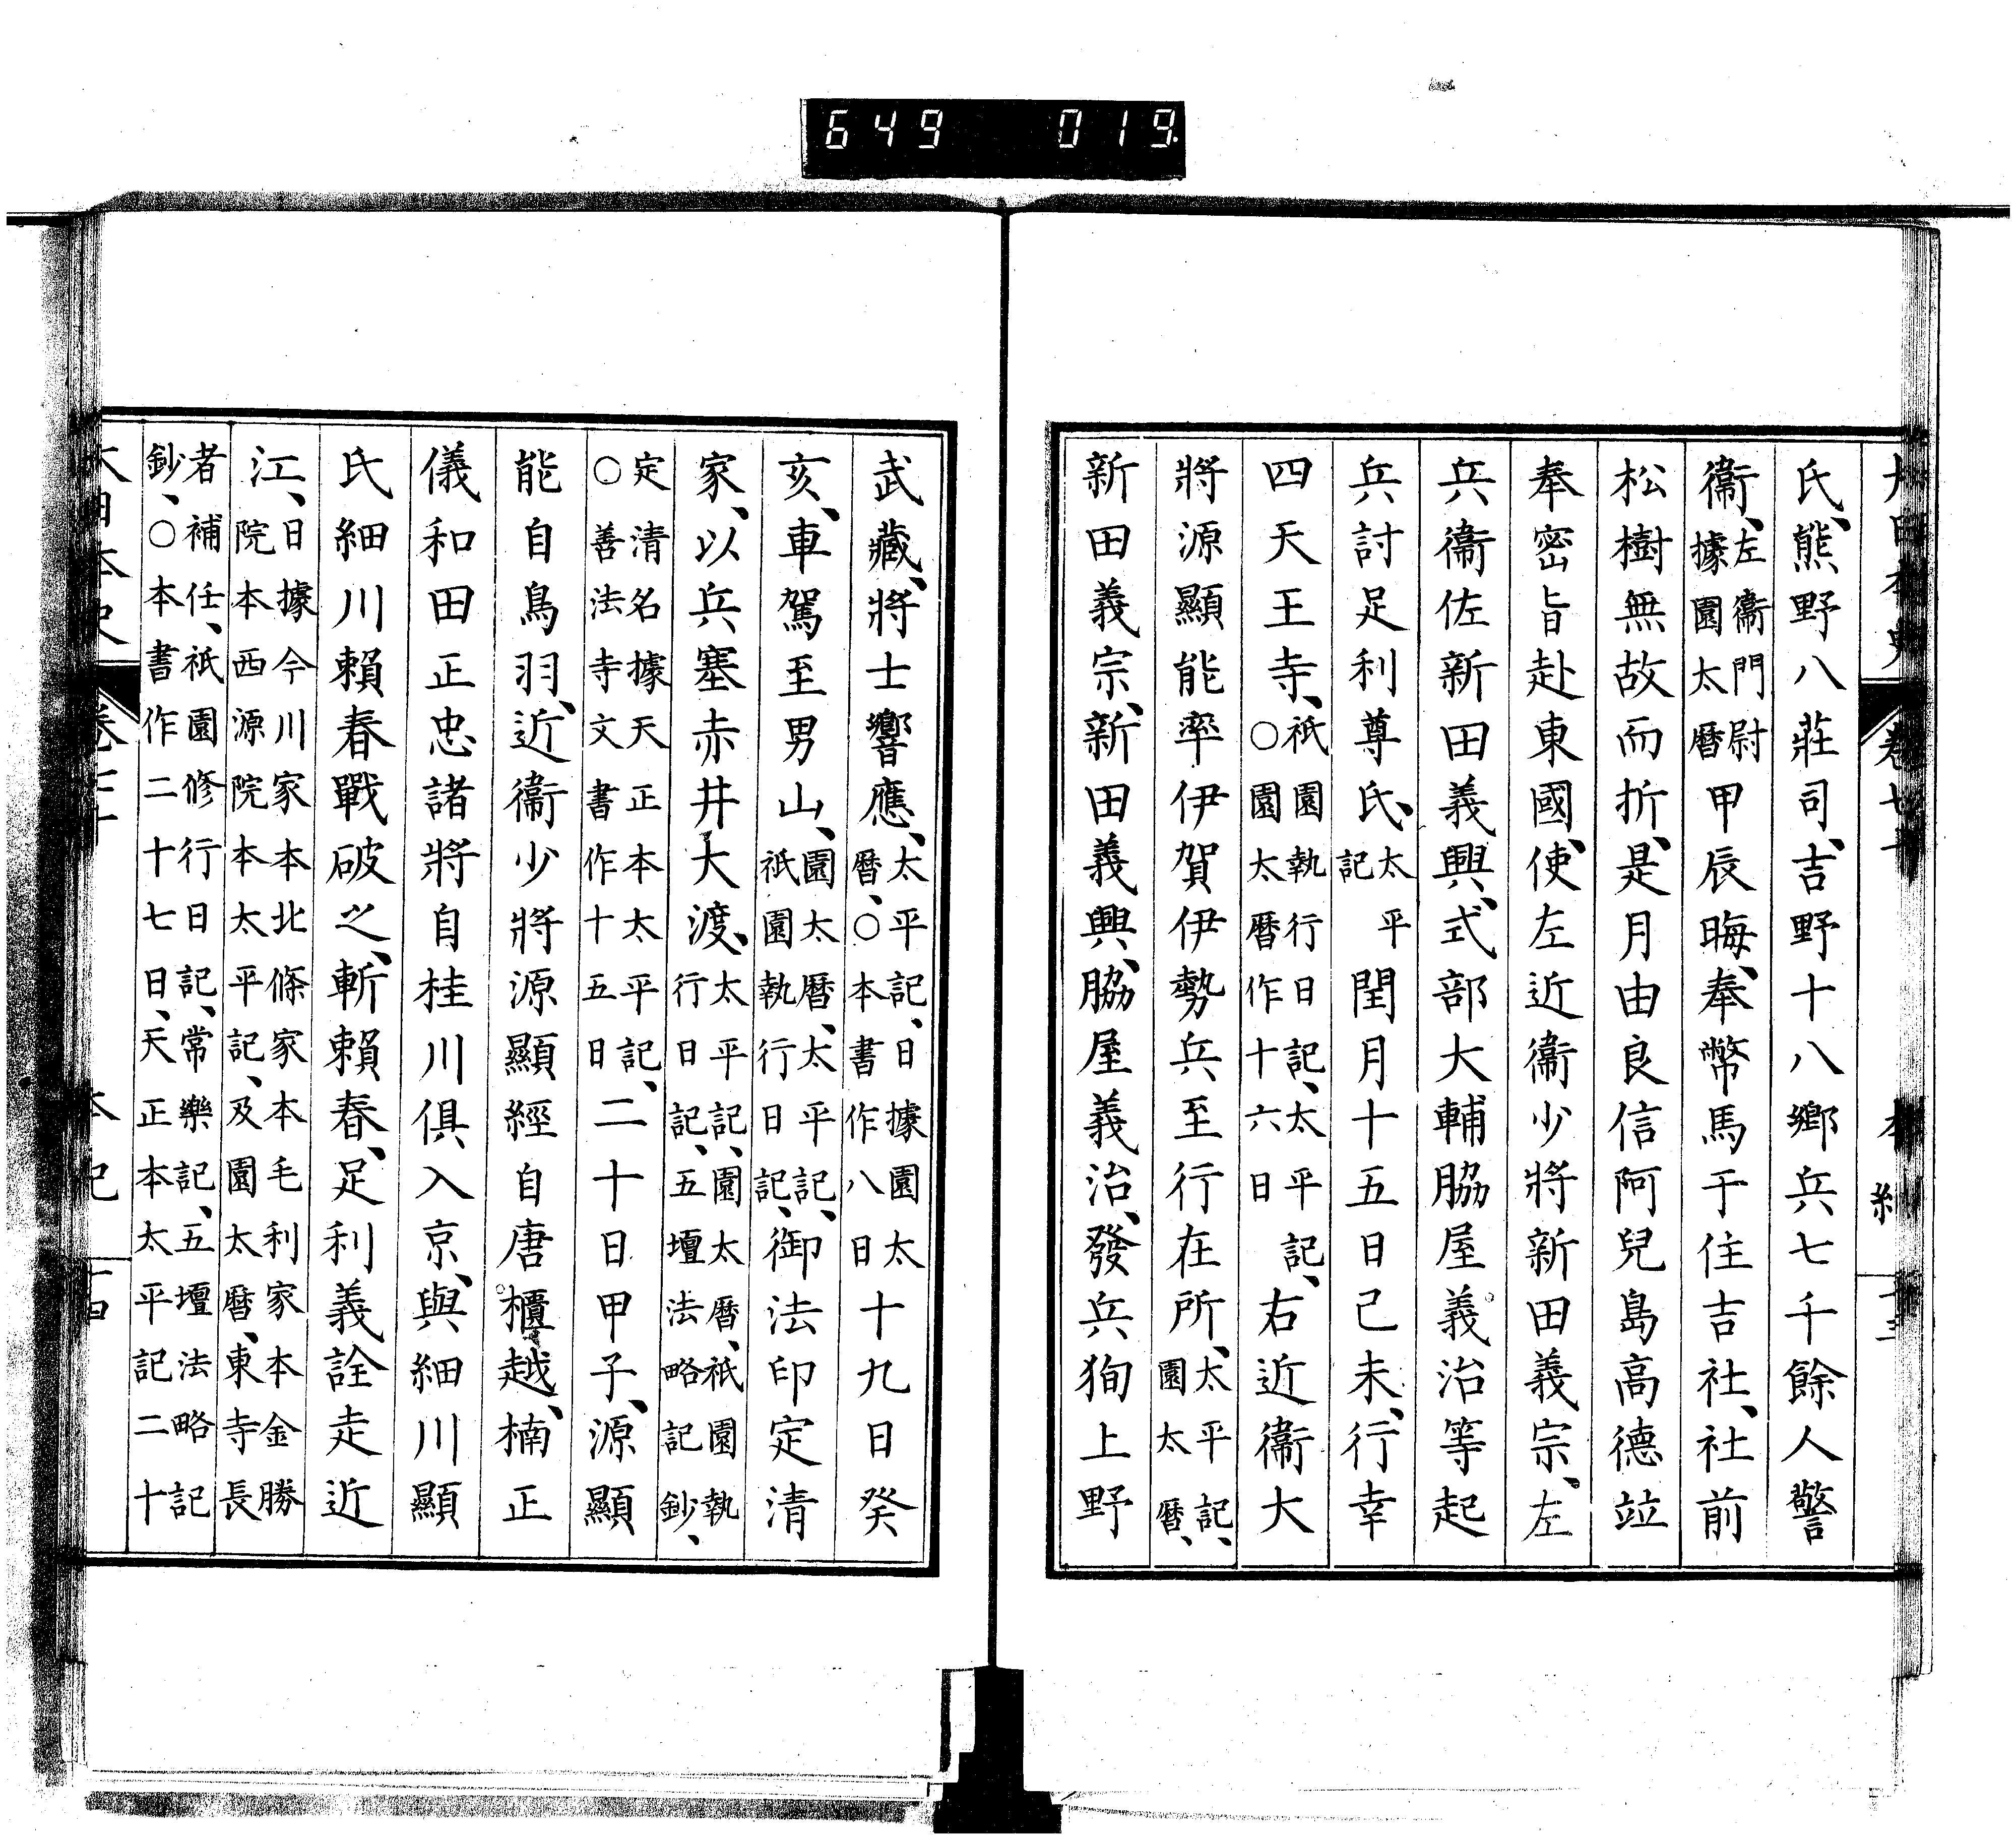 649 019
大日本史 卷七十 本紀 十三
氏、熊野八莊司、吉野十八鄉兵七千餘人警
衞、左衞門尉據園太曆甲辰晦、奉幣馬于住吉社、社前
松樹無故而折、是月由良信阿兒島高德竝
奉密旨赴東國、使左近衞少將新田義宗、左
兵衞佐新田義興、式部大輔脇屋義治等起
兵討足利尊氏、太平記閏月十五日己未、行幸
四天王寺、祇園執行日記、太平記、○園太曆作十六日右近衞大
將源顯能率伊賀伊勢兵至行在所、太平記、園太曆、
新田義宗、新田義興、脇屋義治、發兵狥上野
武藏、將士響應、太平記、日據園太曆、○本書作八日十九日癸
亥、車駕至男山、園太曆、太平記、祇園執行日記、御法印定清
家、以兵塞赤井大渡、太平記、園太曆、祇園執行日記、五壇法略記鈔、
定清名據天正本太平記、○善法寺文書作十五日二十日甲子、源顯
能自鳥羽、近衞少將源顯經自唐櫃越、楠正
儀和田正忠諸將自桂川俱入京、與細川顯
氏細川賴春戰破之、斬賴春、足利義詮走近
江、日據今川家本北條家本毛利家本金勝院本西源院本太平記、及園太曆、東寺長
者補任、祇園修行日記、常樂記、五壇法略記鈔、○本書作二十七日、天正本太平記二十
大日本史 卷七十 本紀 十四